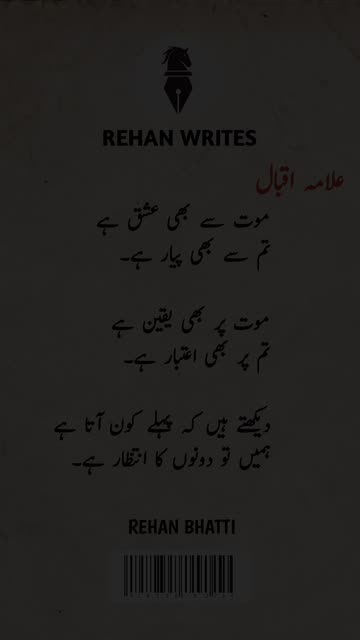 REHAN WRITES
علامہ اقبال
موت سے بھی عشق ہے
تم سے بھی پیار ہے۔
موت پر بھی یقین ہے
تم پر بھی اعتبار ہے۔
دیکھتے ہیں کہ پہلے کون آتا ہے
ہمیں تو دونوں کا انتظار ہے۔
REHAN BHATTI